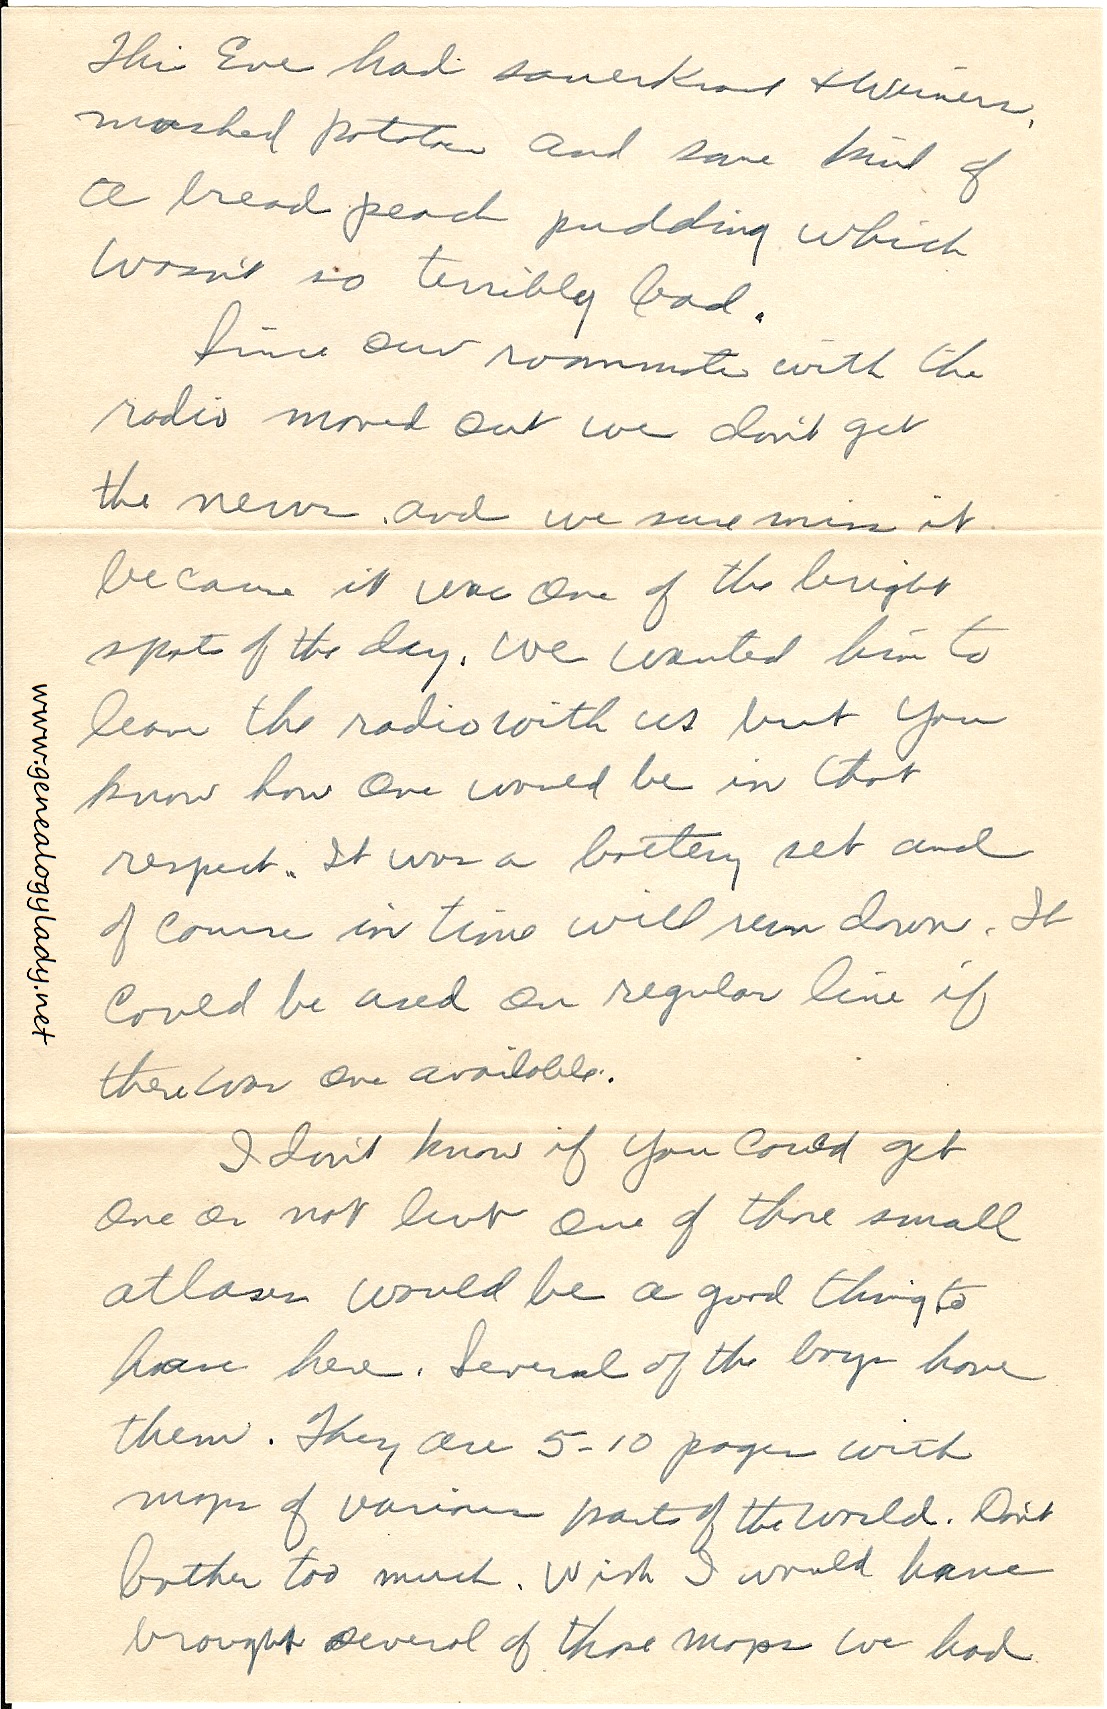 This Eve had sauerkraut & Weiners,
mashed potatoes and some kind of
a bread peach pudding which
wasn't so terribly bad.
Since our roommate with the
radio moved out we don't get
the news and we sure miss it
because it was one of the bright
spots of the day. We wanted him to
leave the radio with us but you
know how one would be in that
respect. It was a battery set and
of course in time will run down. It
could be used on regular line if
there was one available.
I don't know if you could get
one or not but one of those small
atlases would be a good thing to
have here. Several of the boys have
them. They are 5-10 pages with
maps of various parts of the world. Don't
bother too much. Wish I would have
brought several of those maps we had
www.genealogylady.net